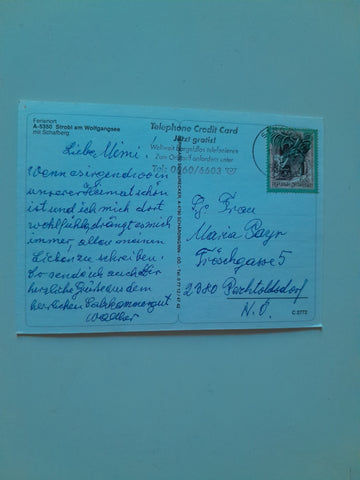 Ferienort
A-5350 Strobl am Wolfgangsee
mit Schafberg
Telephone Credit Card
Jetzt gratis!
Weltweit bargeldlos telefonieren
Zum Ortstarif anfordern unter
Tel.: 0660/6603
Liebe Mimi!
Wenn es irgendwo in
unserer Heimat schön
ist und ich mich dort
wohlfühle, drängt es mich
immer, allen meinen
Lieben zu schreiben.
So sende ich auch Dir
herzliche Grüße aus dem
herrlichen Salzkammergut
Walther
Frau
Maria Bayr
Fröschgasse 5
2380 Perchtoldsdorf
N.Ö.
REPUBLIK ÖSTERREICH
C 2772